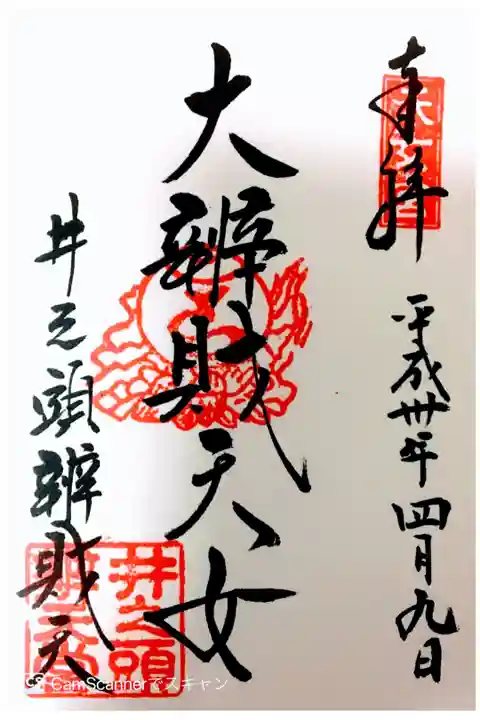 奉拝
平成卅年四月九日
大辨財天女
井之頭辨財天
井之頭
CS CamScannerでスキャン